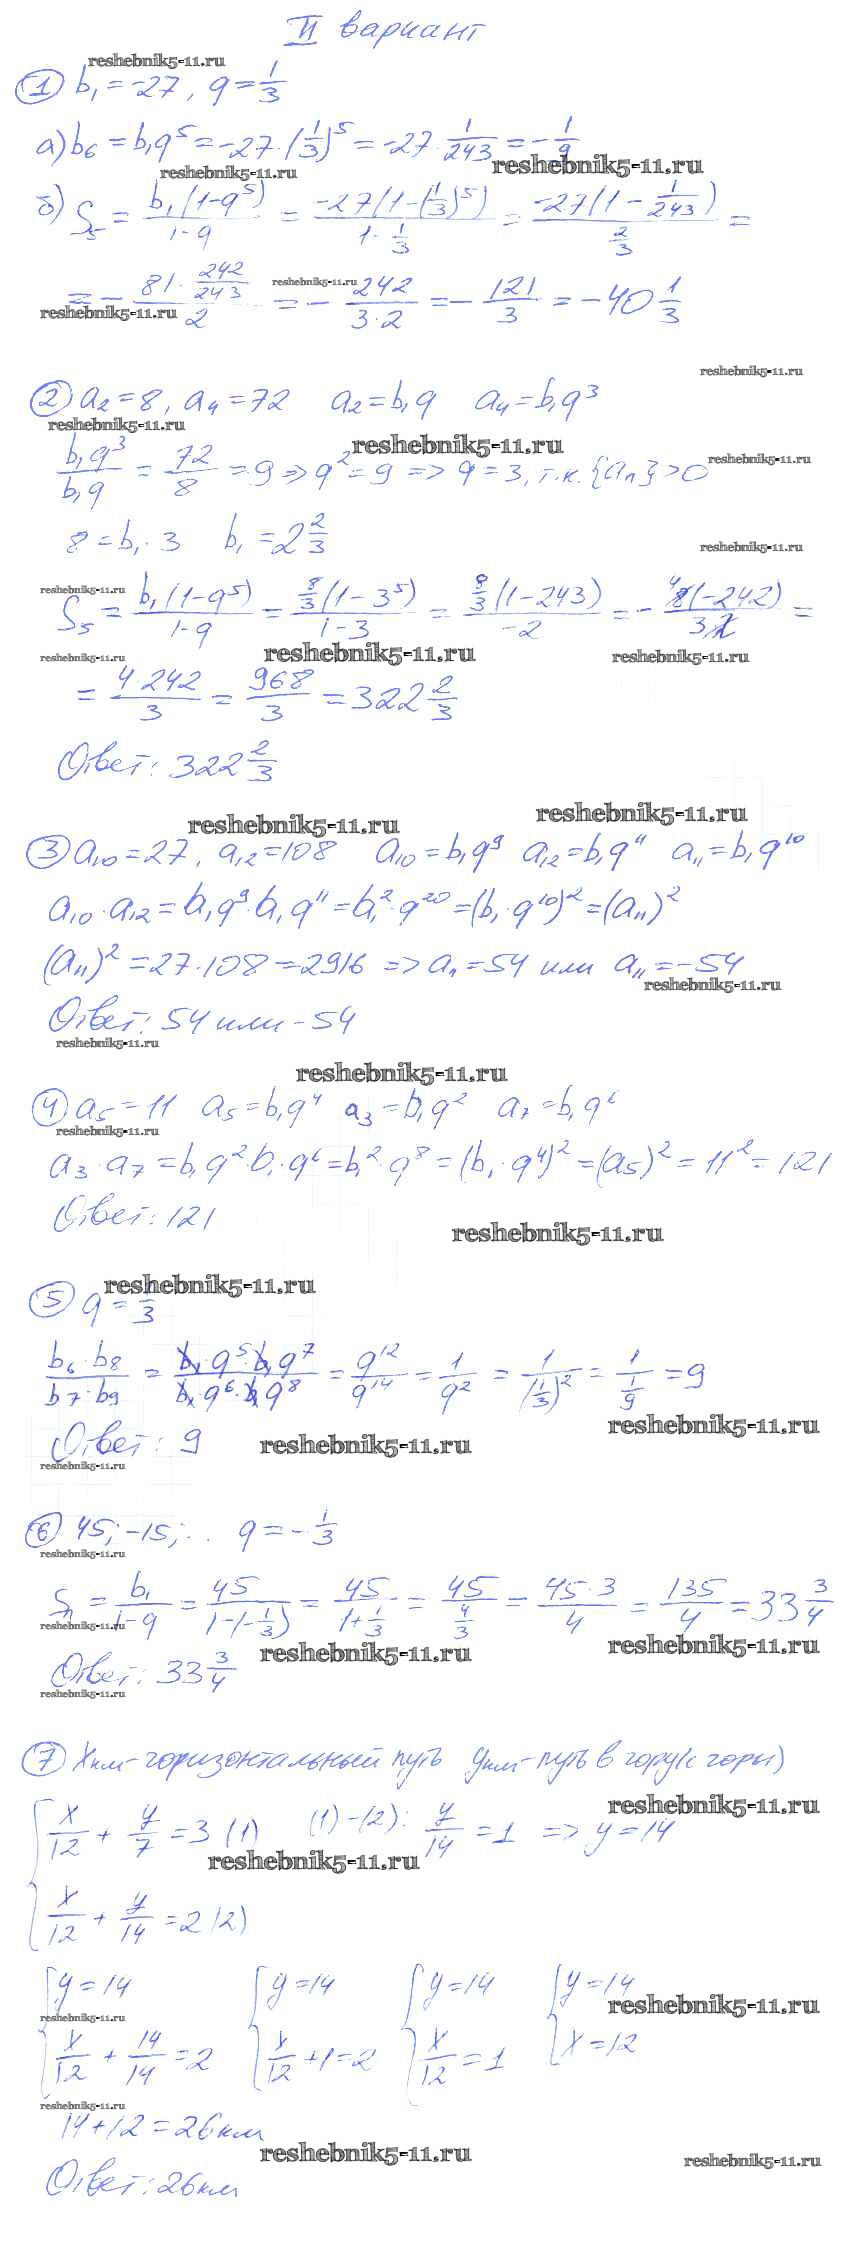 II вариант
reshebnik5-11.ru
① b₁ = -27, q = 1/3
а) b₆ = b₁q⁵ = -27·(1/3)⁵ = -27·1/243 = -1/9
reshebnik5-11.ru reshebnik5-11.ru
б) S₅ = b₁(1-q⁵)/(1-q) = -27(1-(1/3)⁵)/(1-1/3) = -27(1-1/243)/(2/3) =
= - 81·242/243 / 2 = - 242/(3·2) = - 121/3 = -40 1/3
reshebnik5-11.ru reshebnik5-11.ru
reshebnik5-11.ru
② a₂ = 8, a₄ = 72 a₂ = b₁q a₄ = b₁q³
reshebnik5-11.ru reshebnik5-11.ru reshebnik5-11.ru
b₁q³/b₁q = 72/8 = 9 => q² = 9 => q = 3, т.к. {aₙ} > 0
8 = b₁·3 b₁ = 2 2/3
reshebnik5-11.ru
reshebnik5-11.ru
S₅ = b₁(1-q⁵)/(1-q) = 8/3(1-3⁵)/(1-3) = 8/3(1-243)/(-2) = - 4 8(-242)/(3·2) =
reshebnik5-11.ru reshebnik5-11.ru reshebnik5-11.ru
= 4·242/3 = 968/3 = 322 2/3
Ответ: 322 2/3
reshebnik5-11.ru reshebnik5-11.ru
③ a₁₀ = 27, a₁₂ = 108 a₁₀ = b₁q⁹ a₁₂ = b₁q¹¹ a₁₁ = b₁q¹⁰
a₁₀·a₁₂ = b₁q⁹·b₁q¹¹ = b₁²·q²⁰ = (b₁·q¹⁰)² = (a₁₁)²
(a₁₁)² = 27·108 = 2916 => a₁₁ = 54 или a₁₁ = -54
reshebnik5-11.ru
Ответ: 54 или -54
reshebnik5-11.ru
reshebnik5-11.ru
④ a₅ = 11 a₅ = b₁q⁴ a₃ = b₁q² a₇ = b₁q⁶
reshebnik5-11.ru
a₃·a₇ = b₁q²·b₁·q⁶ = b₁²·q⁸ = (b₁·q⁴)² = (a₅)² = 11² = 121
Ответ: 121
reshebnik5-11.ru
reshebnik5-11.ru
⑤ q = 1/3
b₆·b₈/b₇·b₉ = b₁·q⁵·b₁q⁷/b₁·q⁶·b₁q⁸ = q¹²/q¹⁴ = 1/q² = 1/(1/3)² = 1/(1/9) = 9
reshebnik5-11.ru
Ответ: 9
reshebnik5-11.ru
reshebnik5-11.ru
⑥ 45; -15; .. q = -1/3
reshebnik5-11.ru
Sₙ = b₁/(1-q) = 45/(1-(-1/3)) = 45/(1+1/3) = 45/(4/3) = 45·3/4 = 135/4 = 33 3/4
reshebnik5-11.ru reshebnik5-11.ru reshebnik5-11.ru
Ответ: 33 3/4
reshebnik5-11.ru
⑦ x км - горизонтальный путь y км - путь в гору (с горы)
reshebnik5-11.ru
x/12 + y/7 = 3 (1) (1)-(2): y/14 = 1 => y = 14
reshebnik5-11.ru
x/12 + y/14 = 2 (2)
y = 14 y = 14 y = 14 y = 14
reshebnik5-11.ru reshebnik5-11.ru
x/12 + 14/14 = 2 x/12 + 1 = 2 x/12 = 1 x = 12
reshebnik5-11.ru
14 + 12 = 26 км
reshebnik5-11.ru reshebnik5-11.ru
Ответ: 26 км